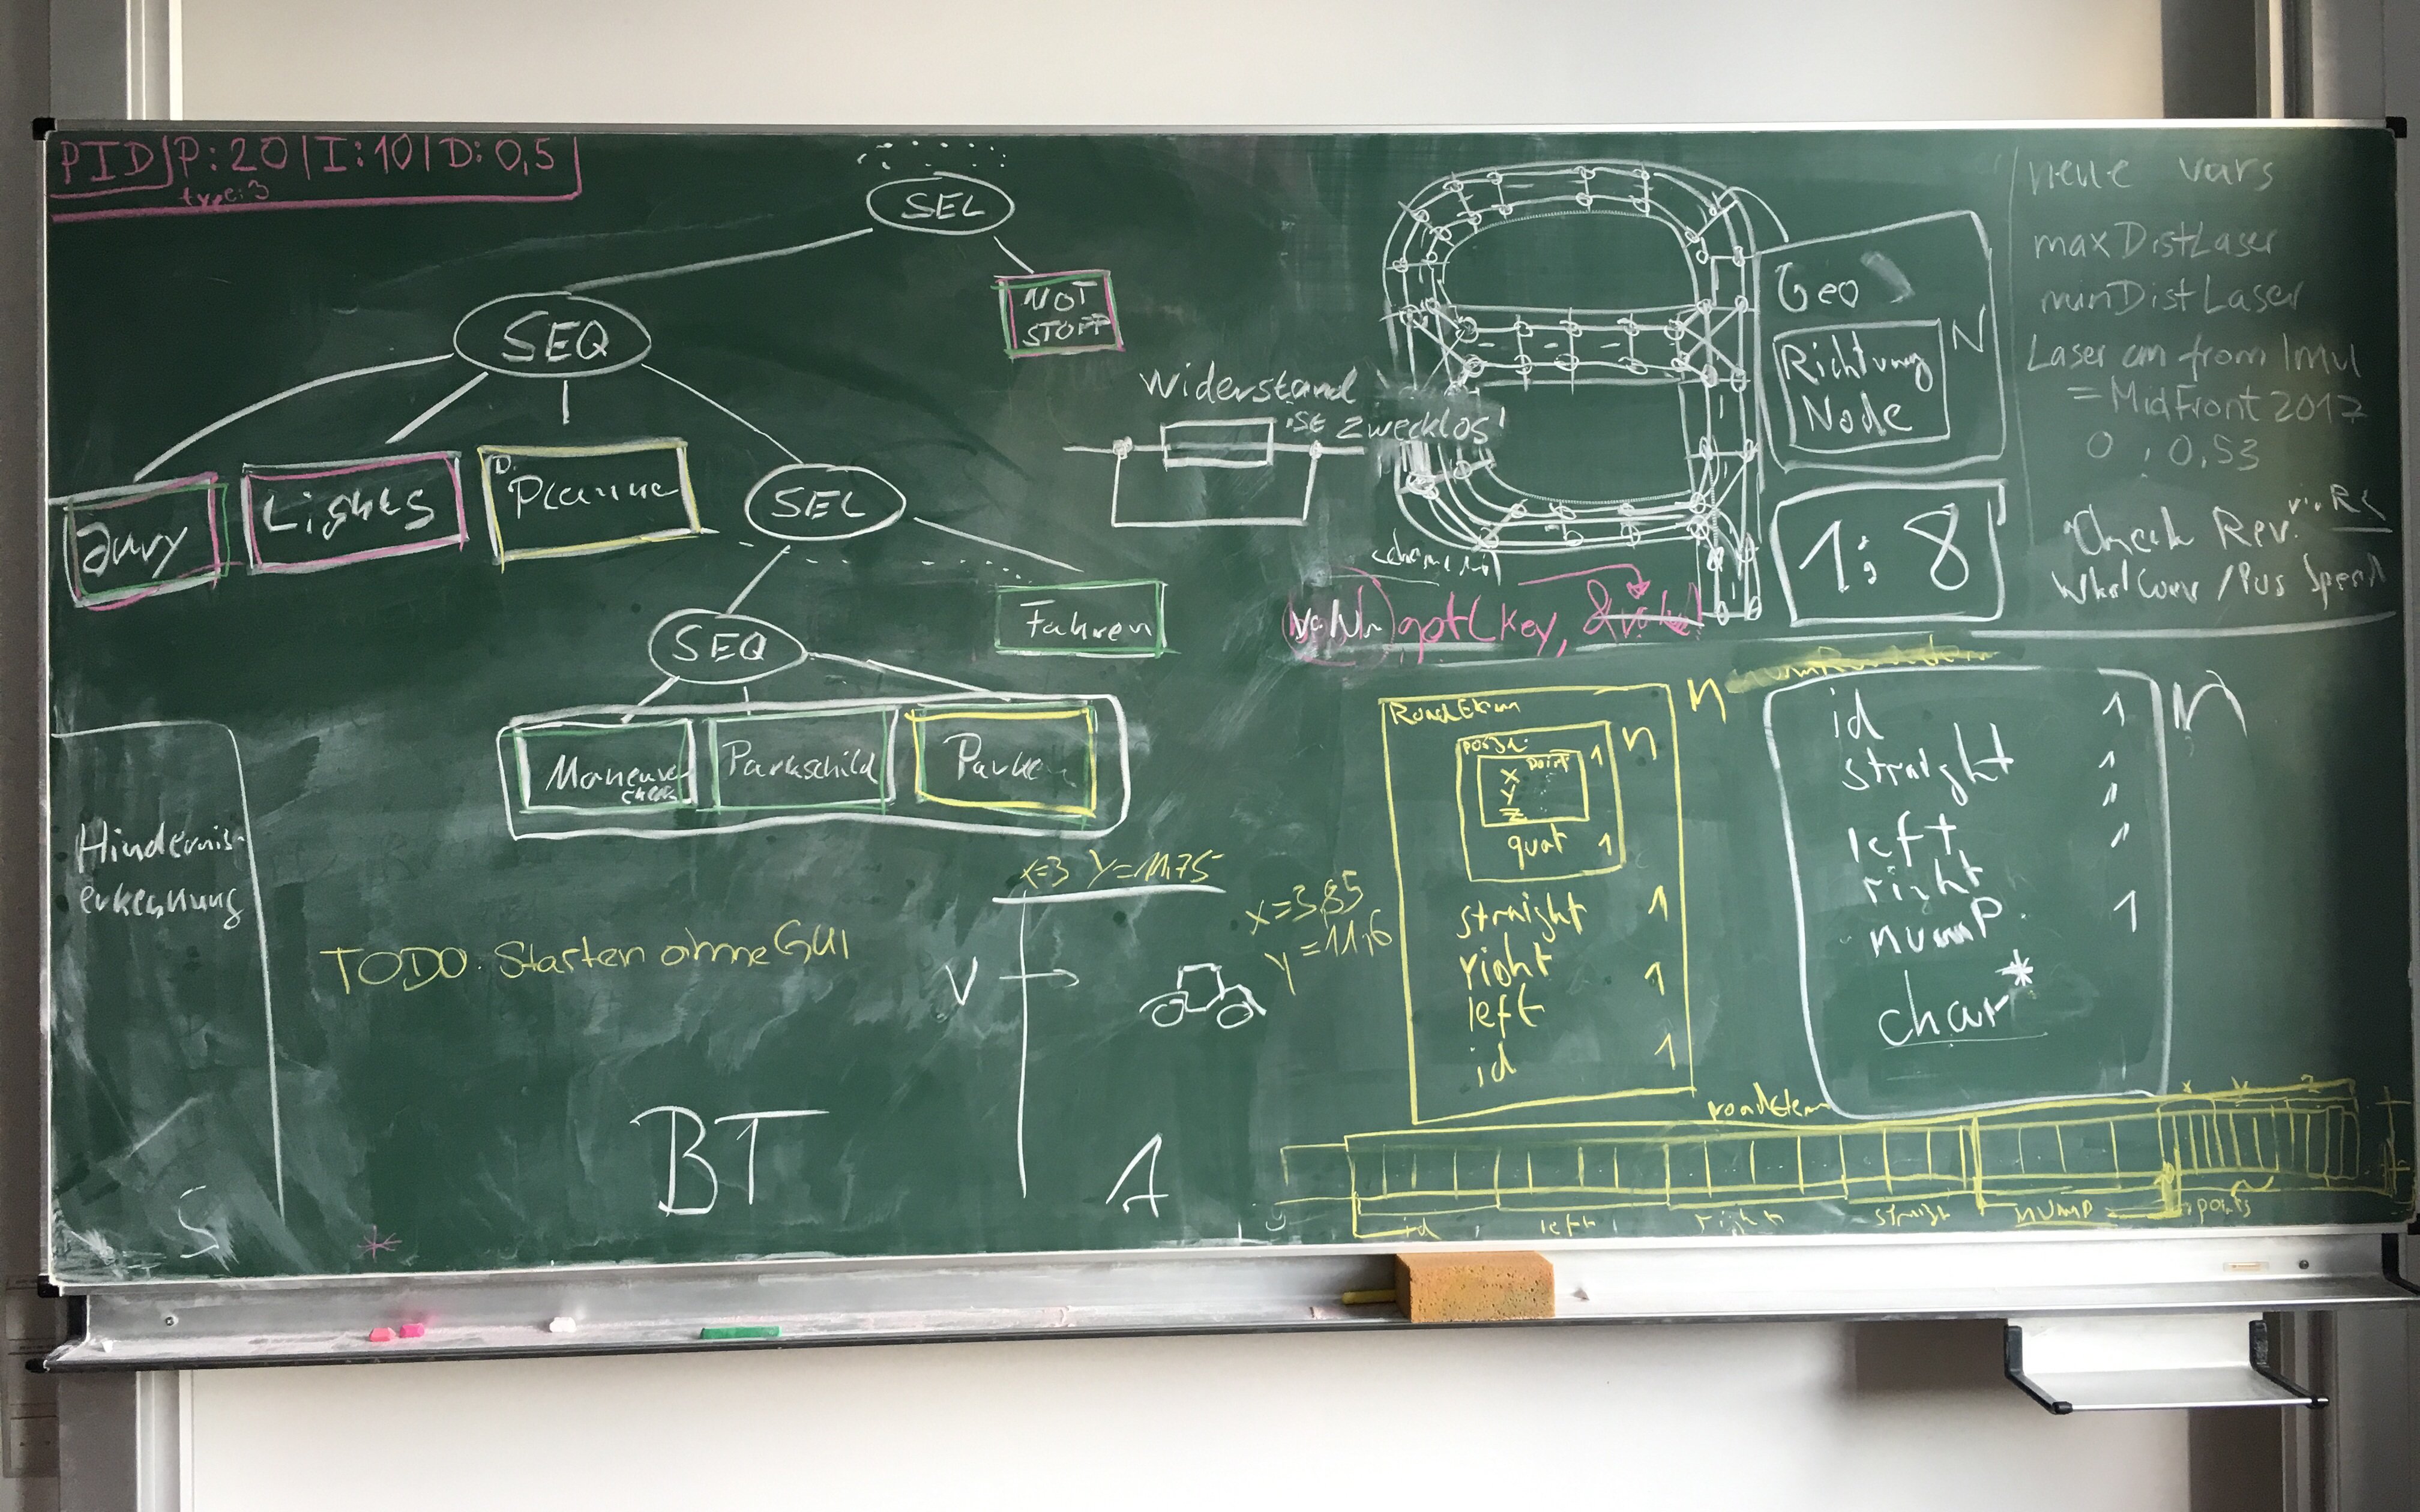 PID P: 20 | I: 10 | D: 0,5
type: 3
SEL
NOT
STOPP
SEQ
Jury
Lights
D.
Planner
SEL
Fahren
SEQ
Maneuver
check
Parkschild
Parken
Hindernis-
erkennung
S
TODO: Starten ohne GUI
BT
x=3 Y=11,75
V
A
x=3,85
y=11,6
Widerstand
ist zwecklos!
Geo
Richtung
Node
N
1:8
get(key,
neue vars
maxDistLaser
minDistLaser
Laser cm from IMU
= MidFront 2017
0 : 0,53
Check Rev.
Speed
RoadElem
n
n
point
x
y
z
1
quat 1
straight 1
right 1
left
id 1
n
id 1
straight 1
left 1
right 1
numP. 1
char*
roadElem
x y z
id left right straight numP points